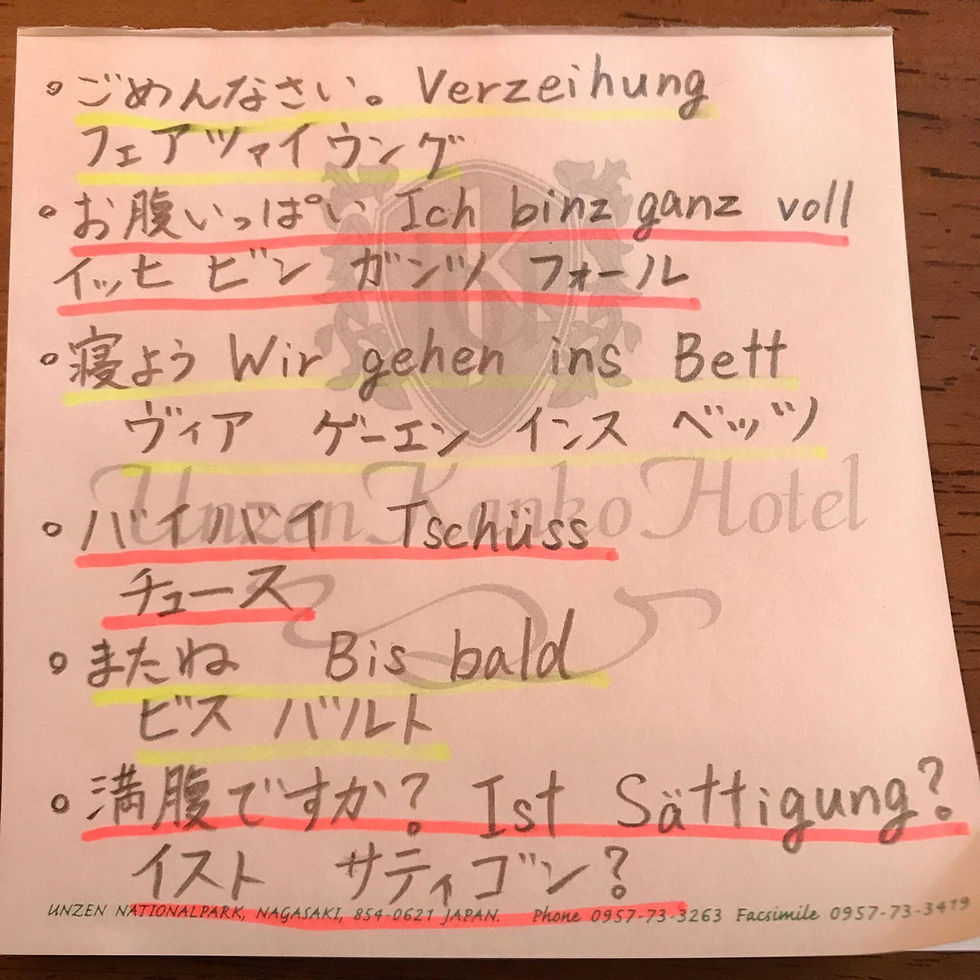 ごめんなさい。 Verzeihung
フェアツァイウング
お腹いっぱい Ich binz ganz voll
イッヒ ビン ガンツ フォール
寝よう Wir gehen ins Bett
ヴィア ゲーエン インス ベッツ
Unzen Kanko Hotel
バイバイ Tschüss
チュース
またね Bis bald
ビス バルト
満腹ですか? Ist Sättigung?
イスト サティゴン?
UNZEN NATIONALPARK, NAGASAKI, 854-0621 JAPAN. Phone 0957-73-3263 Facsimile 0957-73-3419